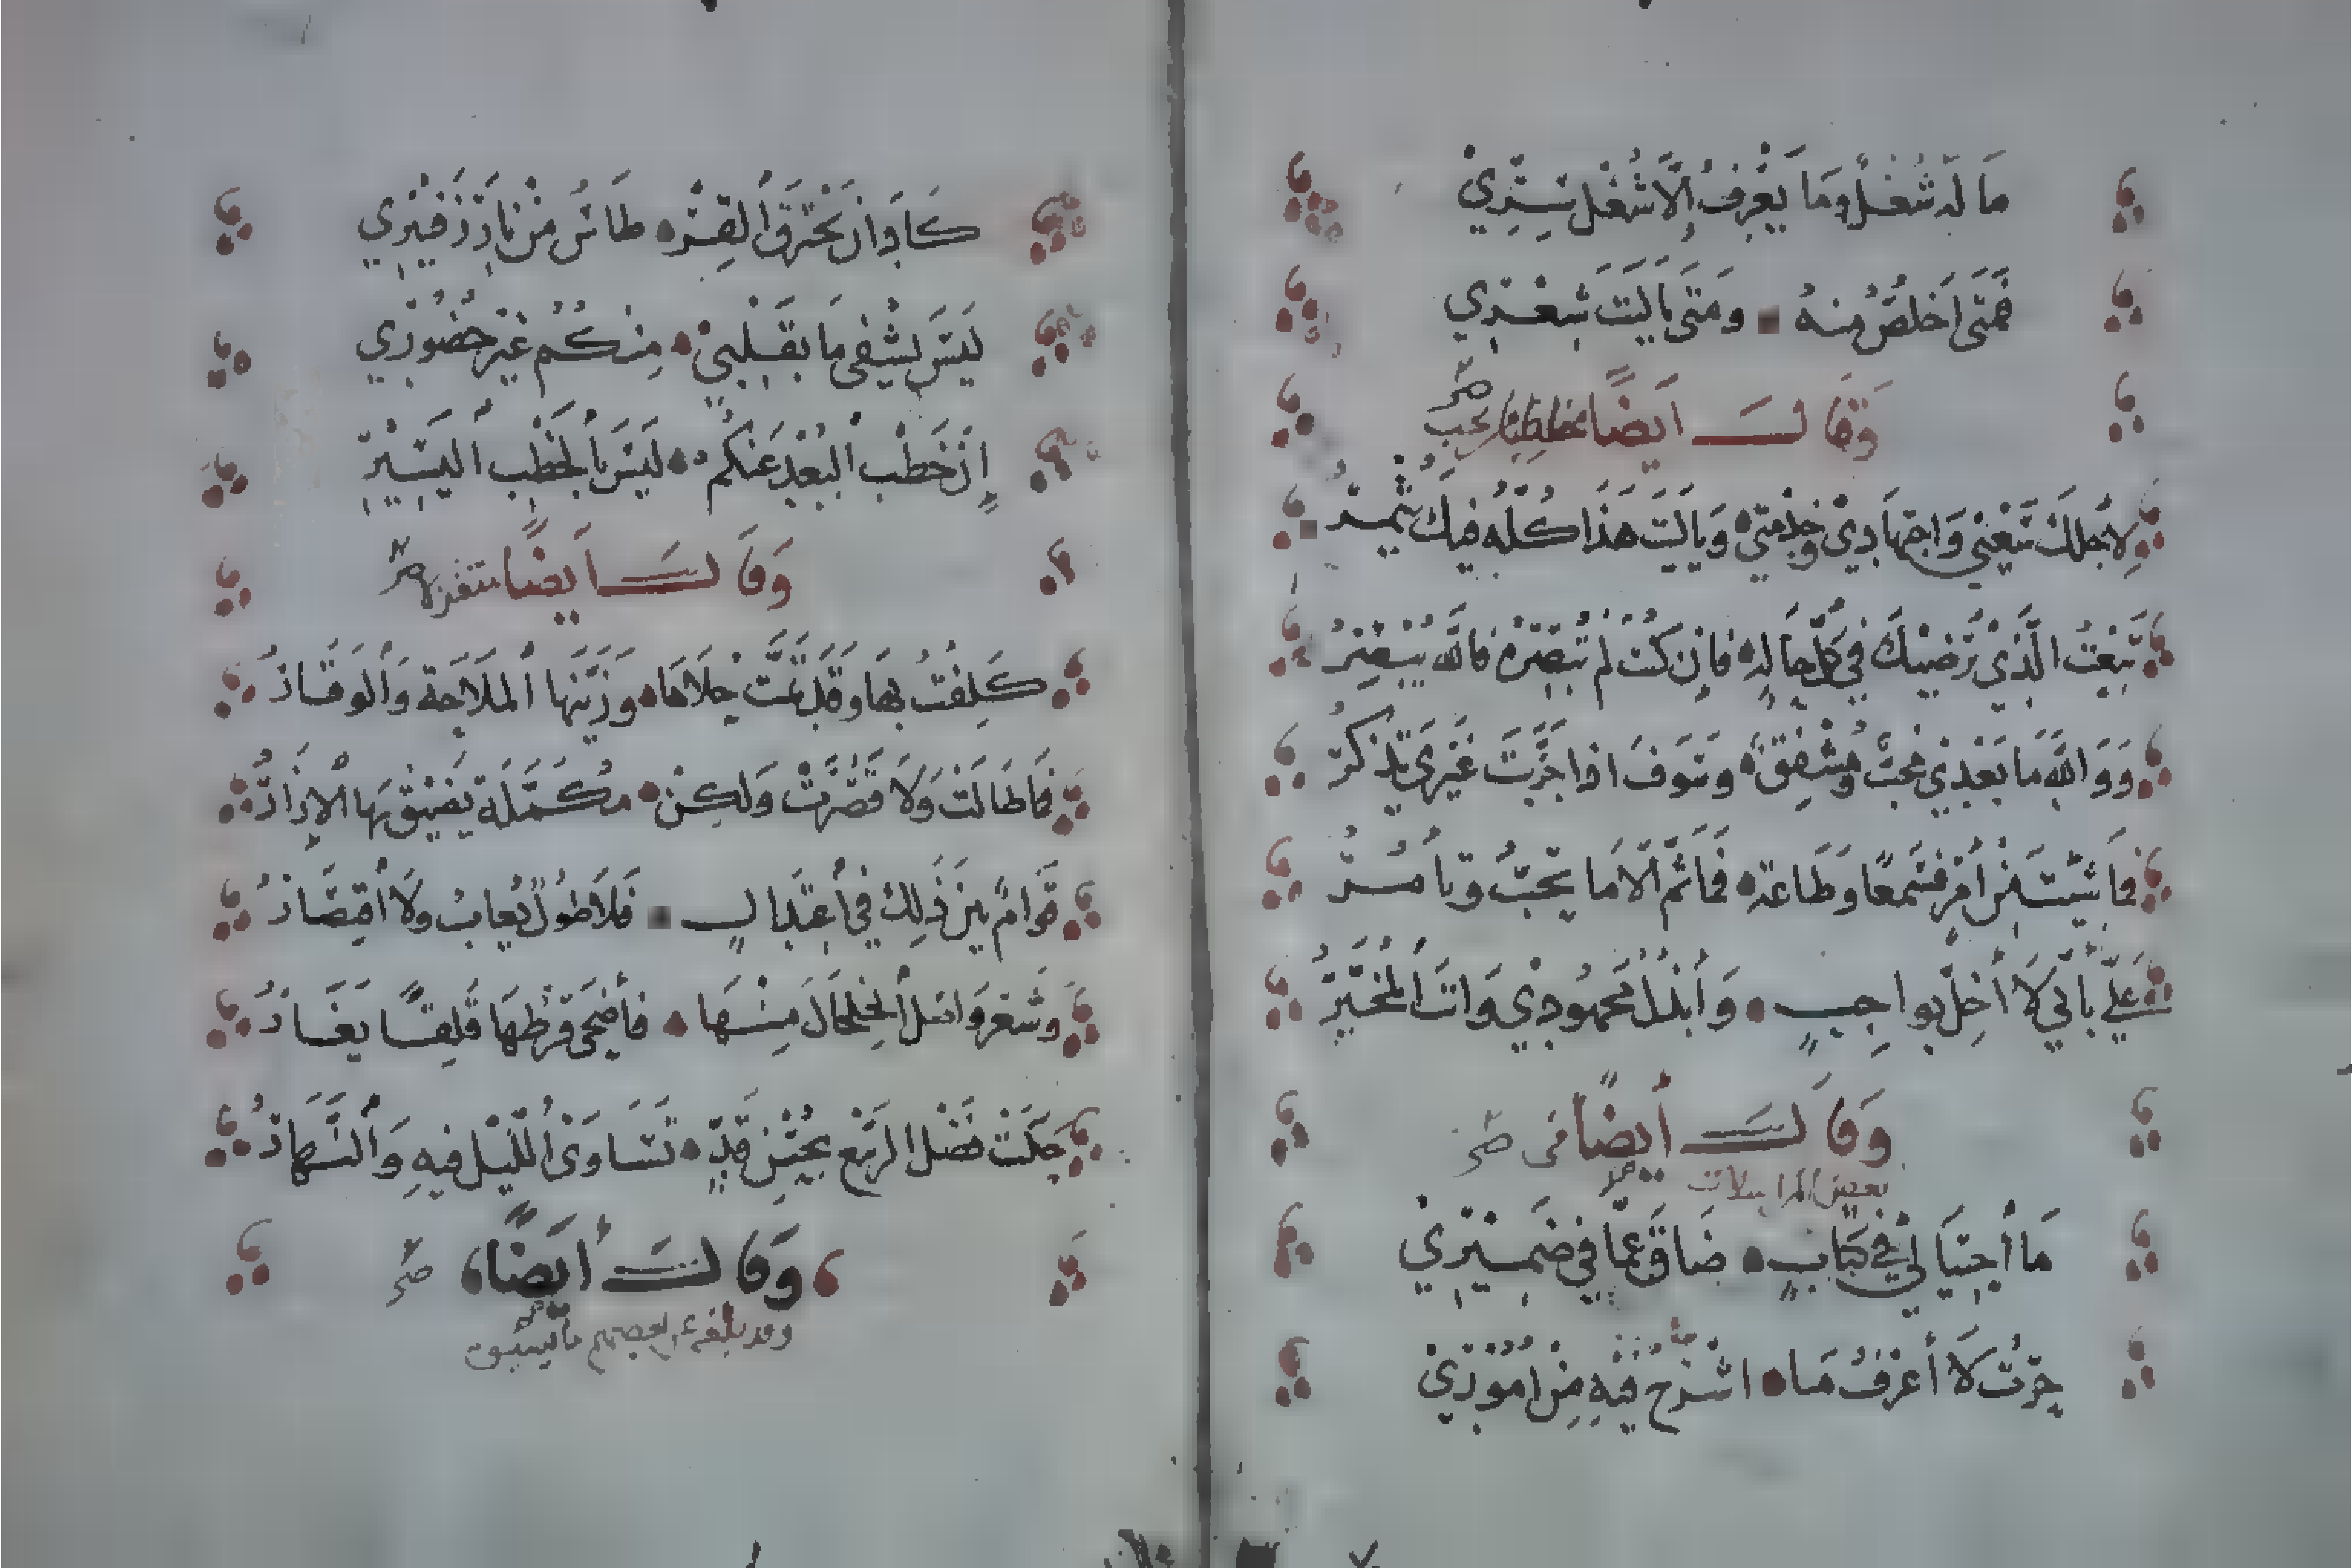 مَا لَهُ شُغْلٌ وَمَا يَعْرِفُ إِلَّا شُغْلَ سِرِّيْ
فَمَتَى اَخْلُصُ مِنْهُ وَمَتَى يَا لَيْتَ شِعْرِي
وَقَالَ اَيضًا يخاطب صح
وَلِأَجْلِكَ سَعْيِي وَاجْتِهَادِيْ وَخِدْمَتِي وَيَا لَيْتَ هَذَا كُلَّهُ فِيكَ يُثْمِرُ
تَبِعْتُ الَّذِيْ يُرْضِيْكَ فِي كُلِّ حَالَةٍ فَإِنْ كُنْتَ لَمْ تُبْصِرْهُ فَاللَّهُ يُبْصِرُ
وَوَاللَّهِ مَا بَعْدِيْ مُحِبٌّ وَمُشْفِقٌ وَسَوْفَ اذا جَرَّبْتَ غَيْرِيَ تَذْكُرُ
فَمَا شِئْتَ مِنْ أَمْرٍ فَسَمْعًا وَطَاعَةً فَمَا ثَمَّ اَلَّا مَا تُحِبُّ وَتَأْمُرُ
عَلَيَّ بِأَنِّي لَا أُخِلُّ بِوَاجِبٍ وَأَبْذُلُ مَجْهُودِيْ وَانتَ اَلْمُخَيَّرُ
وَقَالَ أَيضًا في صح
بعض المراسلات
مَا أَحْتِيَالِيْ فِي كِتَابٍ ضَاقَ عَمَّا فِي ضَمِيْرِيْ
حِرْتُ لَا أَعْرِفُ مَا اشْرَحُ فِيْهِ مِنْ اُمُوْرِيْ
كَادَ انْ يَحْتَرِقَ أَلْقِرْ طَاسُ مِنْ نَارِ زَفِيْرِي
لَيْسَ يَشْفِي مَا بِقَلْبِيْ مِنْكُمْ غَيْرُ حُضُورِي
إِنَّ خَطْبَ اَلْبُعْدِ عَنْكُمْ لَيْسَ بِاَلْخَطْبِ اَليَسِيْرِ
وَقَالَ اَيضًا متغزلا صح
كَلِفْتُ بِهَا وَقَدْ تَمَّتْ حِلَاهَا وَزَيَّنَهَا اَلمَلَاحَةُ وَاَلْوَقَارُ
فَمَا طَالَتْ وَلَا قَصُرَتْ وَلَكِنْ مُكَمَّلَةٌ يَضِيْقُ بِهَا اَلْإِزَارُ
قَوَامٌ بَيْنَ ذَلِكَ فِي أَعْتِدَالٍ فَلَا طُولٌ يُعَابُ وَلَا أَقْتِصَارُ
وَشَعْرٌ وَاصَلَ اَلْخَلْخَالَ مِنْهَا فَأَضْحَى قُرْطُهَا قَلِقًا يَغَارُ
حَكَتْ فَصْلَ الرَّبِيْعِ بِحُسْنِ قَدٍّ تَسَاوَى اَللَّيْلُ فِيهِ وَاَلنَّهَارُ
وَقَالَ أَيَضًا صح
وقد بلغه عن بعضهم